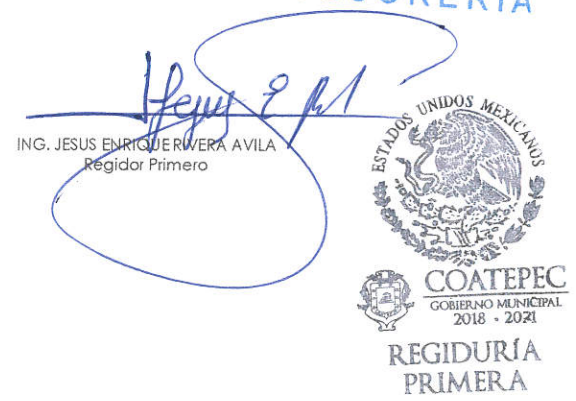 ING. JESUS ENRIQUE RIVERA AVILA
Regidor Primero
ESTADOS UNIDOS MEXICANOS
COATEPEC
GOBIERNO MUNICIPAL
2018 - 2021
REGIDURÍA
PRIMERA